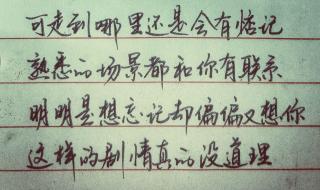 可走到哪里还是会有惦记
熟悉的场景都和你有联系
明明是想忘记却偏偏又想你
这样的剧情真的没道理